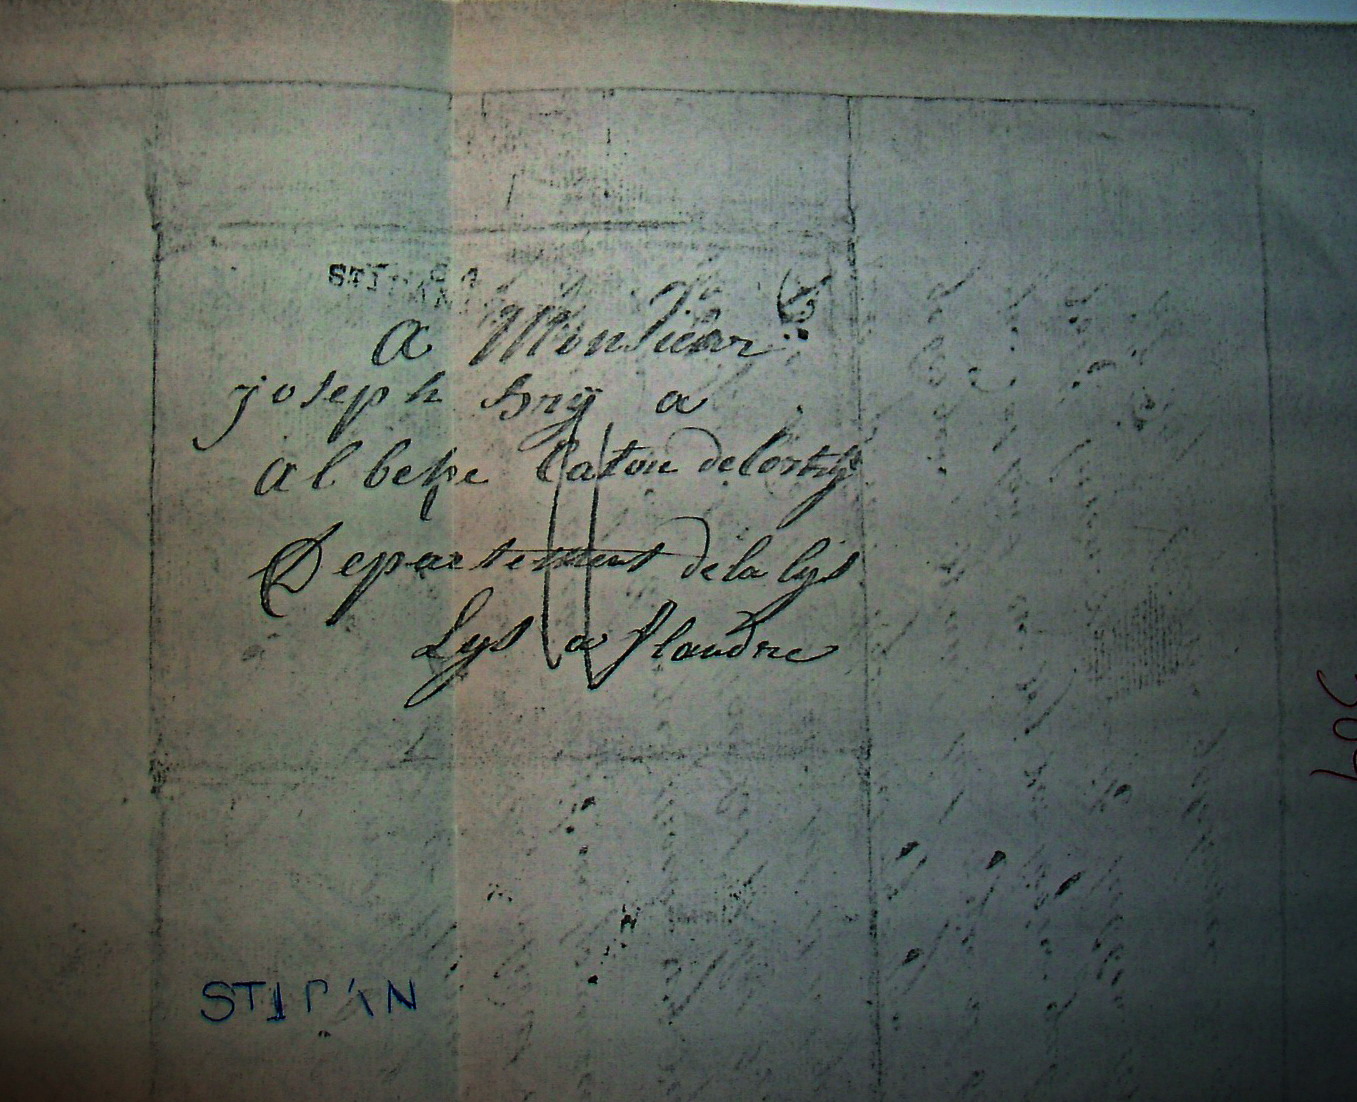 a Monsieur
joseph bry a
albeke Caton delorthy
Departement de la lys
Lys a flandre
STIPAN